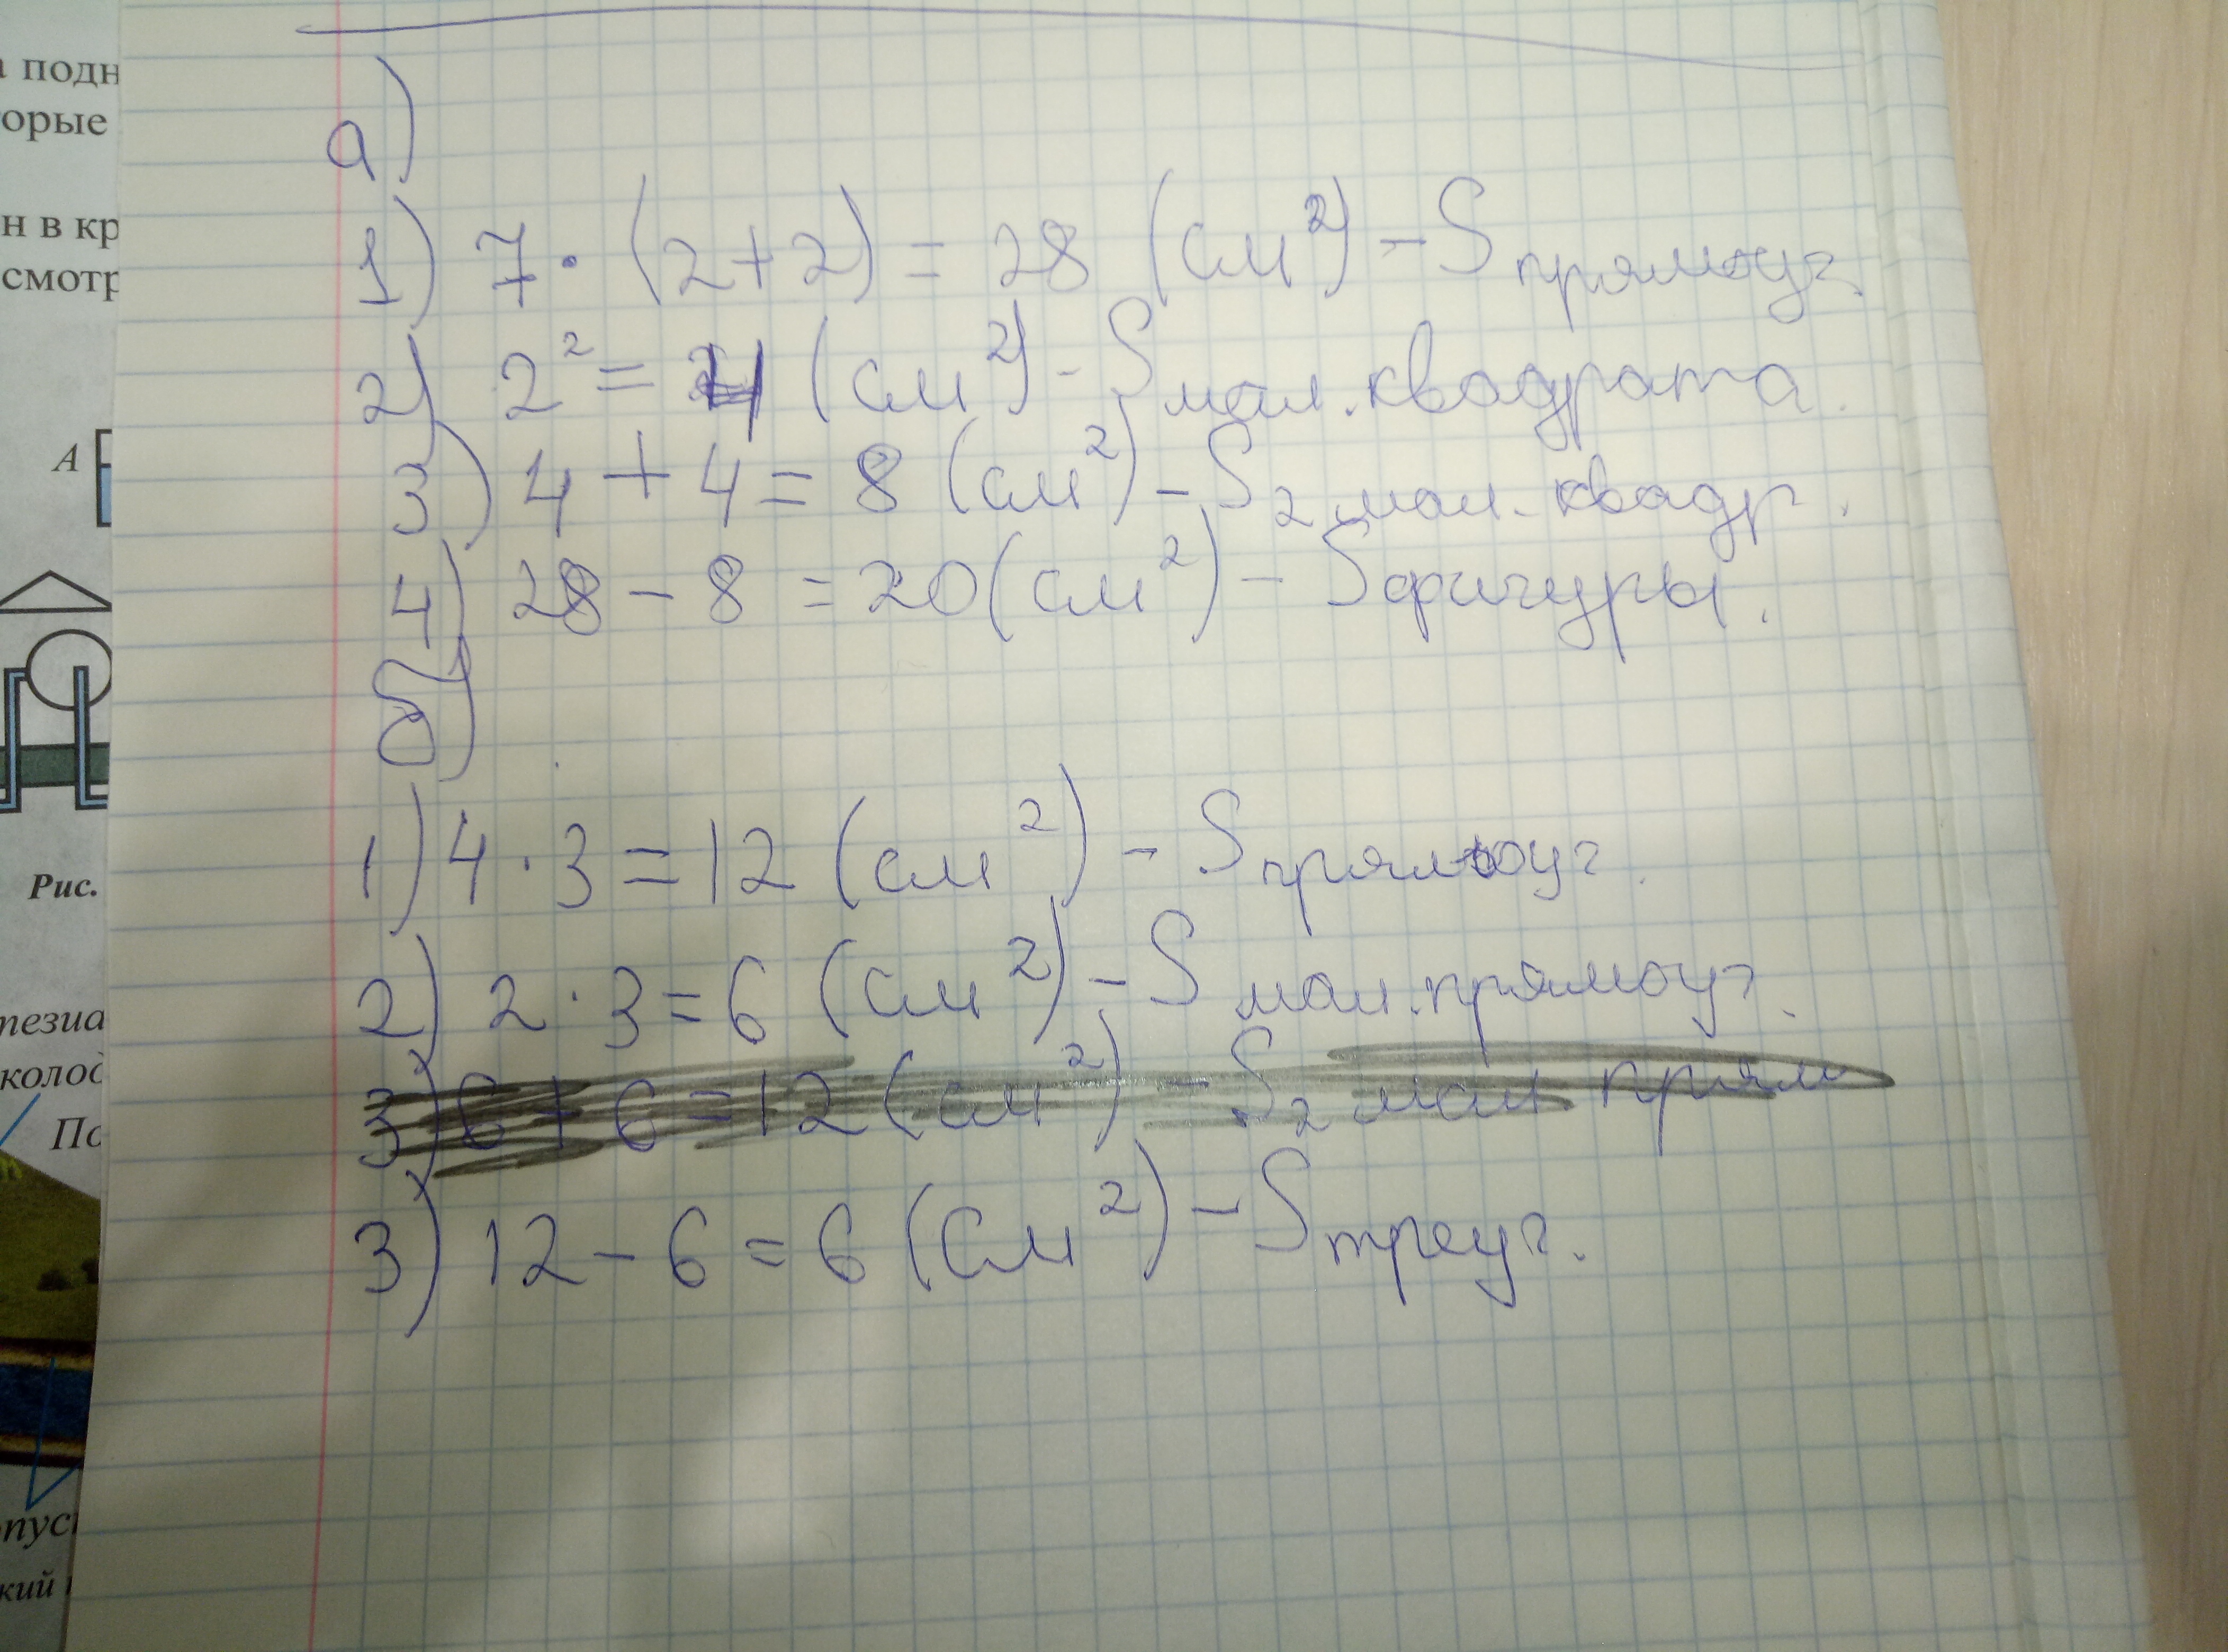 а подн
орые
н в кр
смотр
А
Рис.
тезиа
колод
По
опус
кий
а)
1) 7 · (2+2) = 28 (см²) - S прямоуг.
2) 2² = 4 (см²) - S мал. квадрата.
3) 4 + 4 = 8 (см²) - S 2 мал. квадр.
4) 28 - 8 = 20 (см²) - S фигуры.
б)
1) 4 · 3 = 12 (см²) - S прямоуг.
2) 2 · 3 = 6 (см²) - S мал. прямоуг.
3) 6 + 6 = 12 (см²) - S 2 мал прям
3) 12 - 6 = 6 (см²) - S треуг.